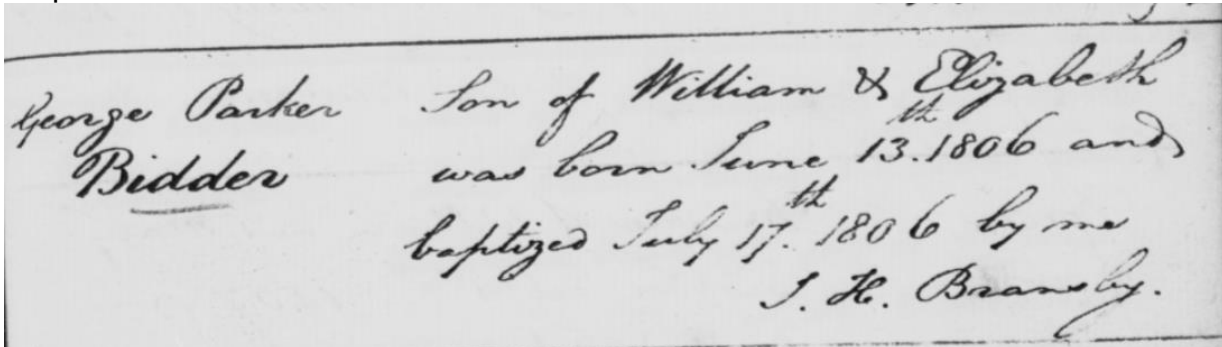 George Parker Son of William & Elizabeth
Bidder was born June 13.th 1806 and
baptized July 17.th 1806 by me
J. H. Bransby.